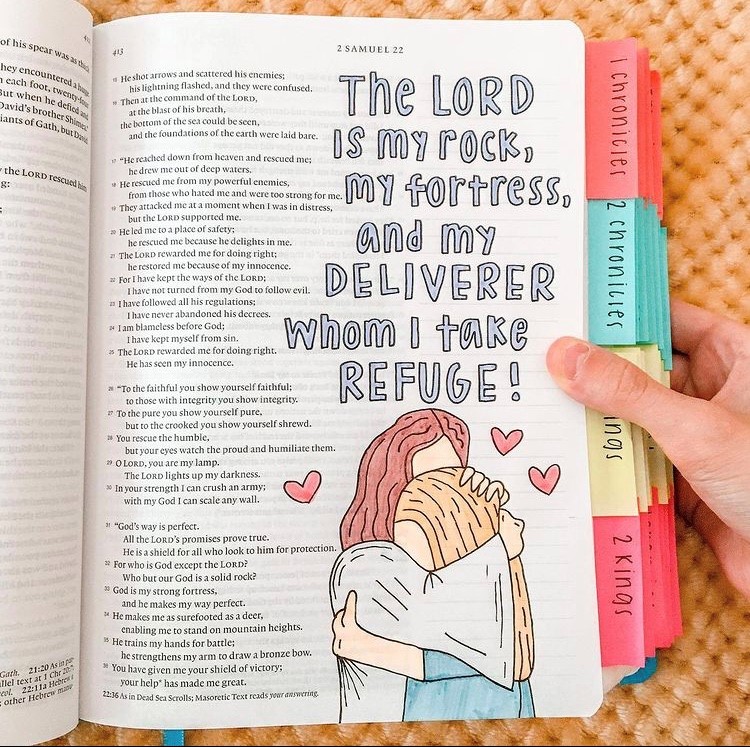 of his spear was as thick
they encountered a huge
n each foot, twenty-four
But when he defied and
David's brother Shimea,
iants of Gath, but David
y the LORD rescued him
g:
413
2 SAMUEL 22
15 He shot arrows and scattered his enemies;
his lightning flashed, and they were confused.
16 Then at the command of the LORD,
at the blast of his breath,
the bottom of the sea could be seen,
and the foundations of the earth were laid bare.
17 “He reached down from heaven and rescued me;
he drew me out of deep waters.
18 He rescued me from my powerful enemies,
from those who hated me and were too strong for me.
19 They attacked me at a moment when I was in distress,
but the LORD supported me.
20 He led me to a place of safety;
he rescued me because he delights in me.
21 The LORD rewarded me for doing right;
he restored me because of my innocence.
22 For I have kept the ways of the LORD;
I have not turned from my God to follow evil.
23 I have followed all his regulations;
I have never abandoned his decrees.
24 I am blameless before God;
I have kept myself from sin.
25 The LORD rewarded me for doing right.
He has seen my innocence.
26 “To the faithful you show yourself faithful;
to those with integrity you show integrity.
27 To the pure you show yourself pure,
but to the crooked you show yourself shrewd.
28 You rescue the humble,
but your eyes watch the proud and humiliate them.
29 O LORD, you are my lamp.
The LORD lights up my darkness.
30 In your strength I can crush an army;
with my God I can scale any wall.
31 “God's way is perfect.
All the LORD's promises prove true.
He is a shield for all who look to him for protection.
32 For who is God except the LORD?
Who but our God is a solid rock?
33 God is my strong fortress,
and he makes my way perfect.
34 He makes me as surefooted as a deer,
enabling me to stand on mountain heights.
35 He trains my hands for battle;
he strengthens my arm to draw a bronze bow.
36 You have given me your shield of victory;
your help* has made me great.
22:36 As in Dead Sea Scrolls; Masoretic Text reads your answering.
The LORD
Is my rock,
my fortress,
and my
DELIVERER
whom I take
REFUGE!
1 chronicles
2 chronicles
ings
2 Kings
Gath. 21:20 As in
llel text at 1 Chr 20:7
22:11a Hebrew
; other Hebrew